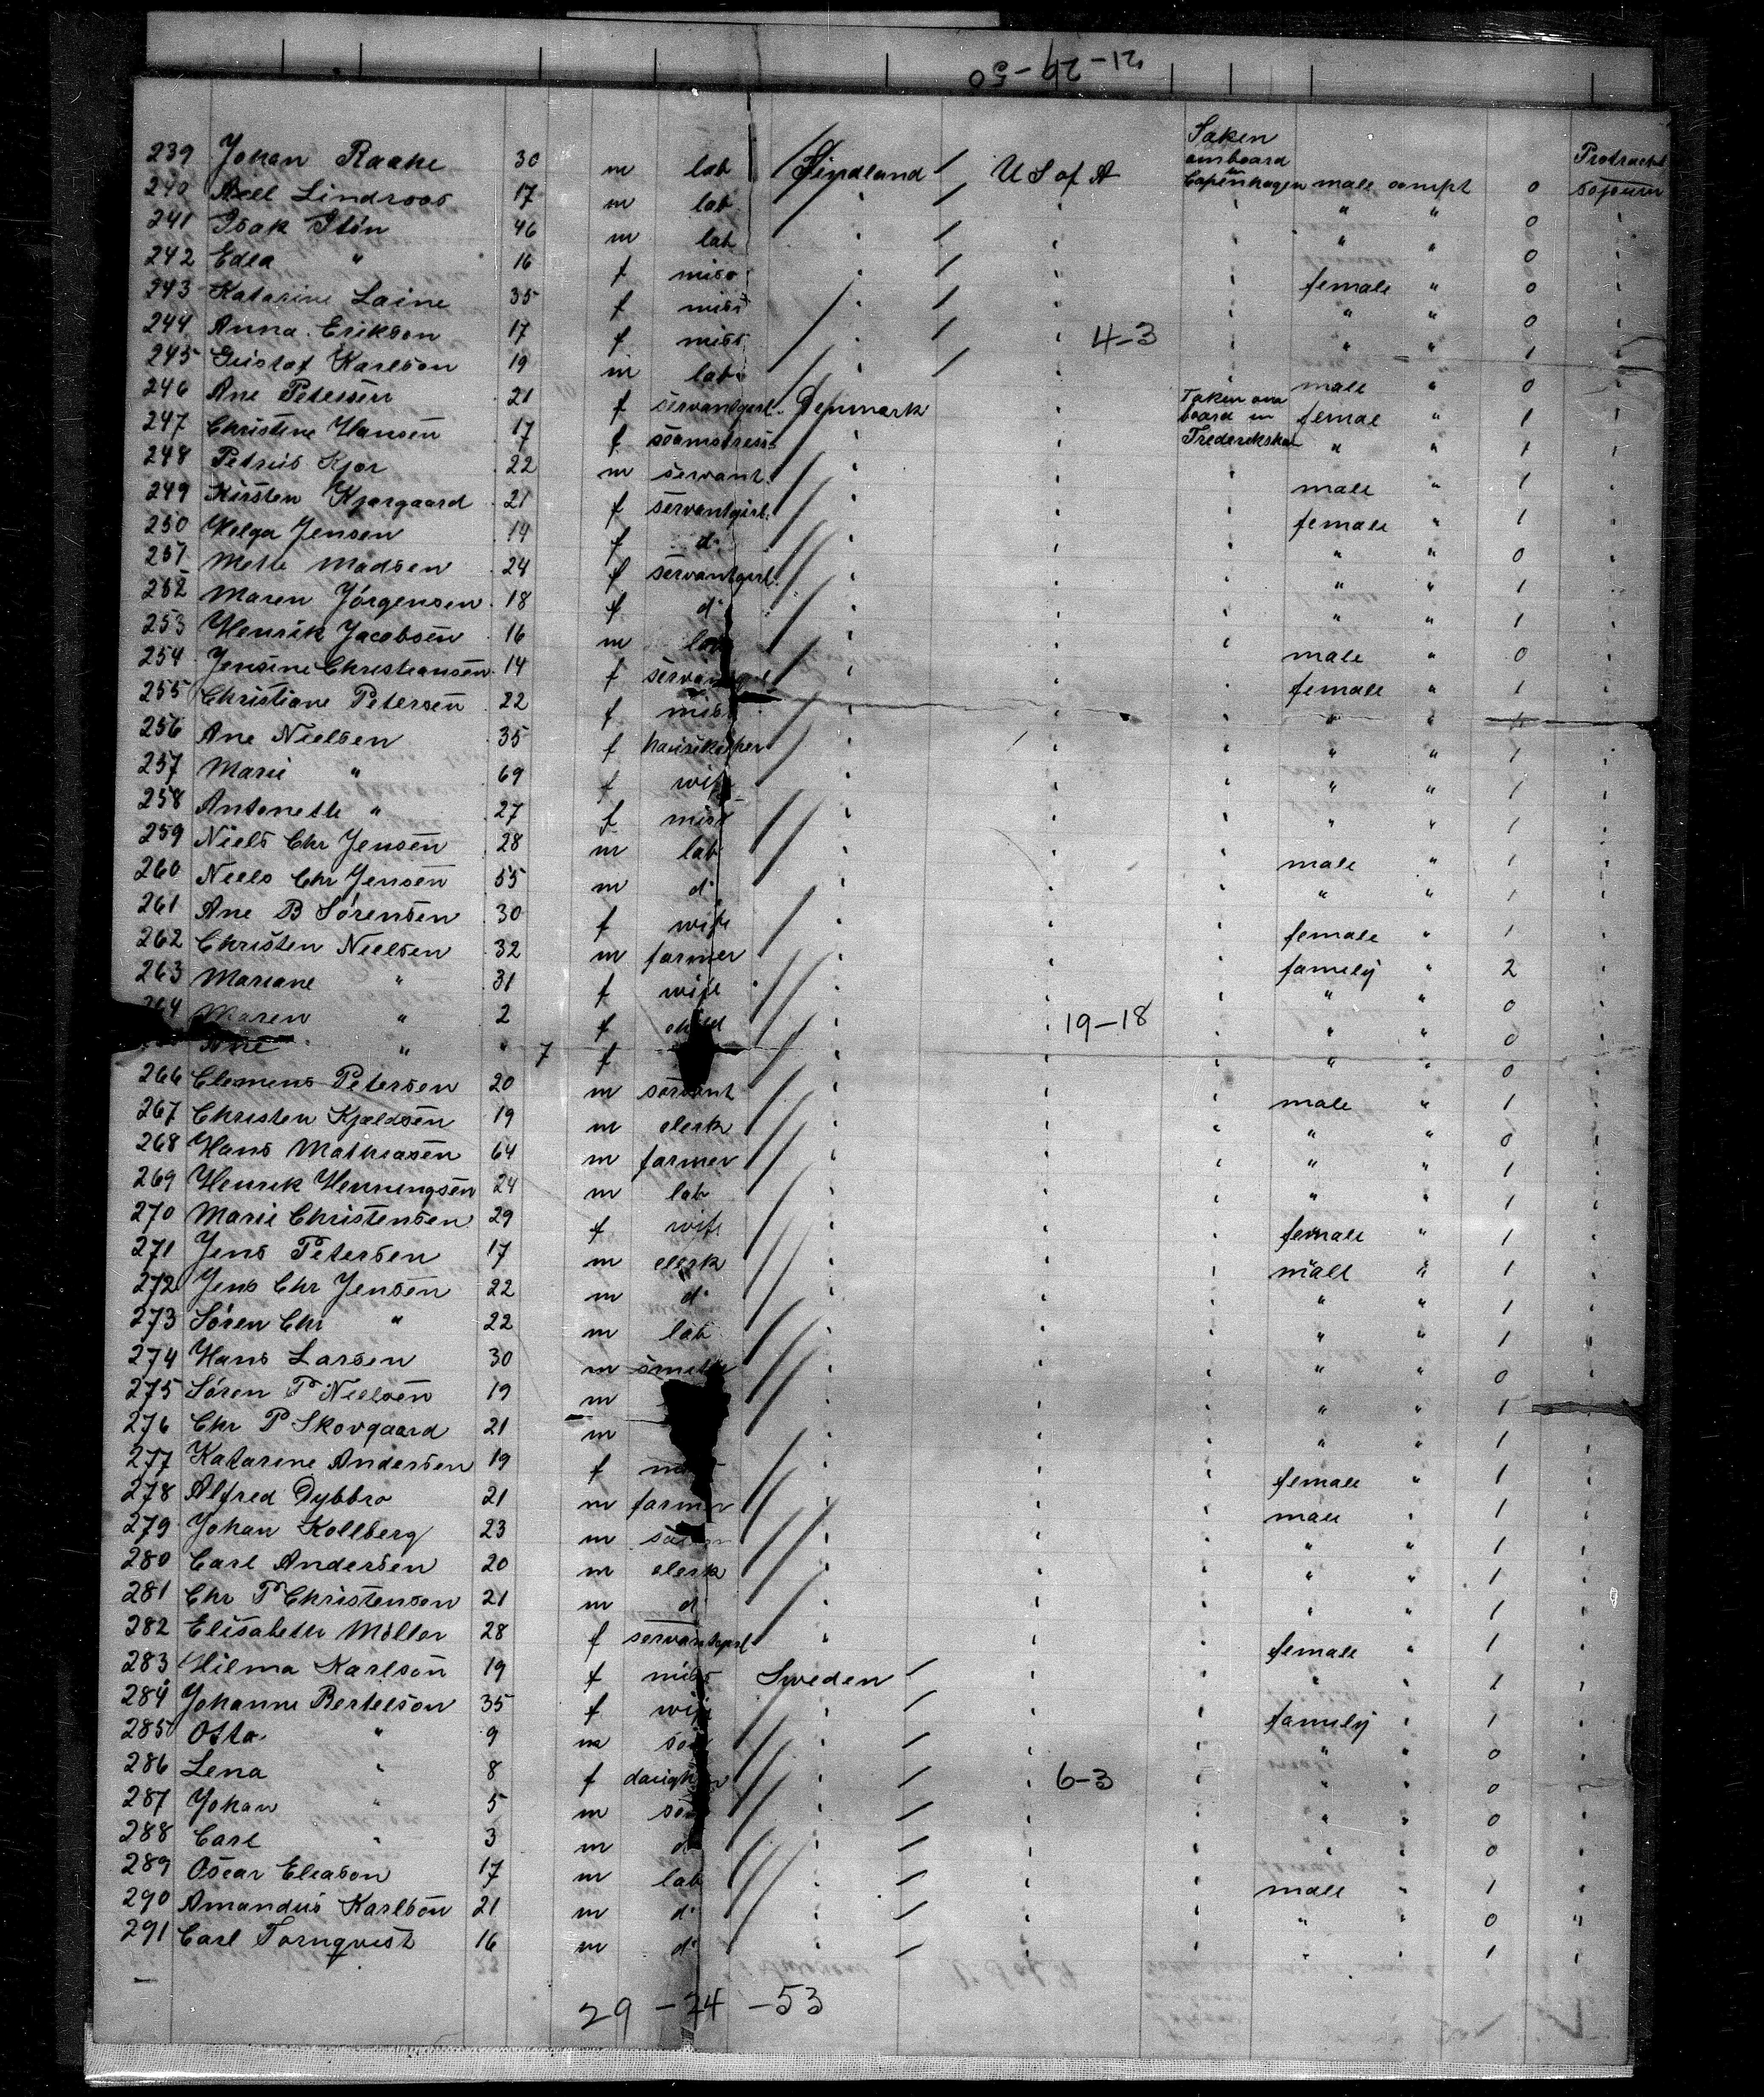 21-29-50
239 Johan Raake 30 m lab Findland U S of A Taken onboard in Copenhagen male compt 0 Protracted sojourn
240 Axel Lindroos 17 m lab " " " " " 0 "
241 Isak Itön 46 m lab " " " " " 0 "
242 Edla " 16 f miss " " " female " 0 "
243 Katarine Laine 35 f miss " " " " " 0 "
244 Anna Erikson 17 f miss " " 4-3 " " " 1 "
245 Gustaf Karlson 19 m lab " " " male " 0 "
246 Ane Petersen 21 f servantgirl Denmark " Taken on board in Frederikshavn femal " 1 "
247 Christine Hansen 17 f seamstress " " " " 1 "
248 Petrus Kjær 22 m servant " " " male " 1 "
249 Kirsten Kjærgaard 21 f servantgirl " " " female " 1 "
250 Helga Jensen 14 f do " " " " " 0 "
251 Mette Madsen 24 f servantgirl " " " " " 1 "
252 Maren Jörgensen 18 f do " " " " " 1 "
253 Henrik Jacobsen 16 m lab " " " male " 0 "
254 Jensine Christiansen 14 f servantgirl " " " female " 1 "
255 Christiane Petersen 22 f miss " " " " "
256 Ane Nielsen 35 f hausekeeper " " " " " 1 "
257 Marie " 69 f wife " " " " " 1 "
258 Antonette " 27 f miss " " " " " 1 "
259 Niels Chr Jensen 28 m lab " " " male " 1 "
260 Niels Chr Jensen 55 m do " " " " " 1 "
261 Ane B Sörensen 30 f wife " " " female " 1 "
262 Christen Nielsen 32 m farmer " " " famely " 2 "
263 Mariane " 31 f wife " " " " " 0 "
264 Maren " 2 f child " " 19-18 " " " 0 "
Ane " " 7 f " " " " " 0 "
266 Clemens Petersen 20 m servant " " " male " 1 "
267 Christen Kjeldsen 19 m clerk " " " " " 0 "
268 Hans Mathiasen 64 m farmer " " " " " 1 "
269 Henrik Henningsen 24 m lab " " " " " 1 "
270 Marie Christensen 29 f wife " " " female " 1 "
271 Jens Petersen 17 m clerk " " " male " 1 "
272 Jens Chr Jensen 22 m do " " " " " 1 "
273 Sören Chr " 22 m lab " " " " " 1 "
274 Hans Larsen 30 m smith " " " " " 0 "
275 Sören P Nielsen 19 m " " " " " 1 "
276 Chr P Skovgaard 21 m " " " " " 1 "
277 Katarine Andersen 19 f " " " female " 1 "
278 Alfred Dybbro 21 m farmer " " " male " 1 "
279 Johan Kollberg 23 m " " " " " 1 "
280 Carl Andersen 20 m clerk " " " " " 1 "
281 Chr P Christensen 21 m do " " " " " 1 "
282 Elisabeth Möller 28 f servantgirl " " " female " 1 "
283 Hilma Karlson 19 f miss Sweden " " " 1 "
284 Johanne Bertelson 35 f wife " " " famely " 1 "
285 Otto " 9 m son " " " " " 0 "
286 Lena " 8 f daughter " " 6-3 " " " 0 "
287 Johan " 5 m son " " " " " 0 "
288 Carl " 3 m do " " " " " 0 "
289 Oscar Eleason 17 m lab " " " male " 1 "
290 Amandus Karlson 21 m do " " " " " 0 "
291 Carl Tornqvist 16 m do " " " " " 1 "
29 - 24 - 53